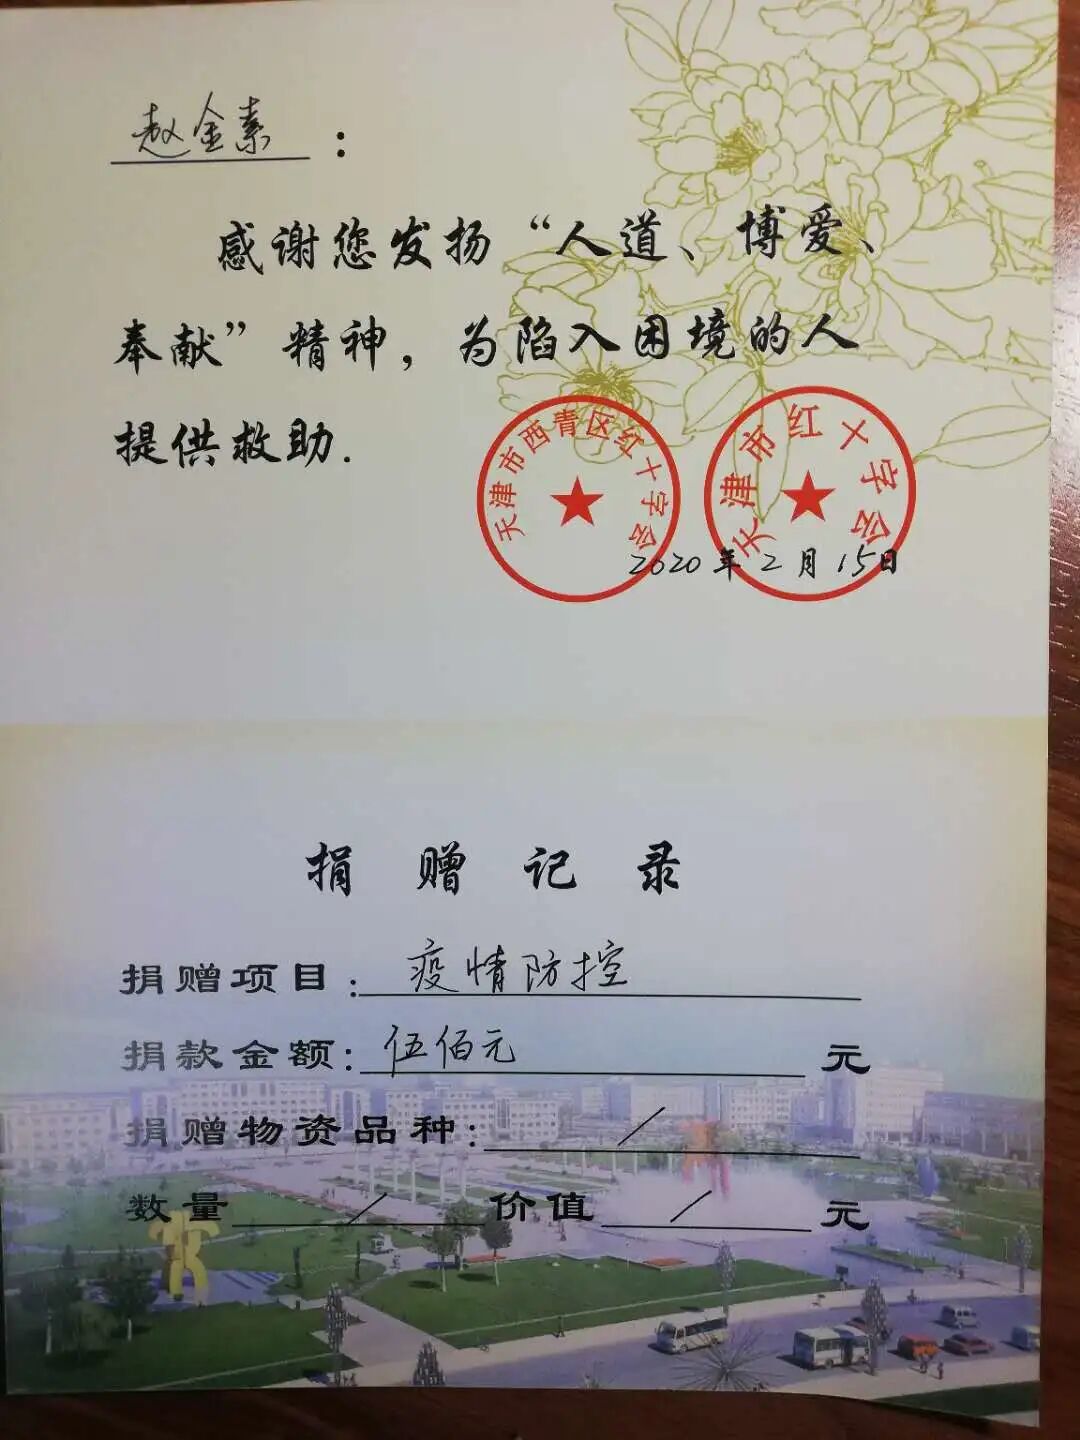 赵金素：
感谢您发扬“人道、博爱、
奉献”精神，为陷入困境的人
提供救助.
天津市西青区红十字会
天津市红十字会
2020年2月15日
捐赠记录
捐赠项目：疫情防控
捐款金额：伍佰元 元
捐赠物资品种：/
数量 / 价值 / 元